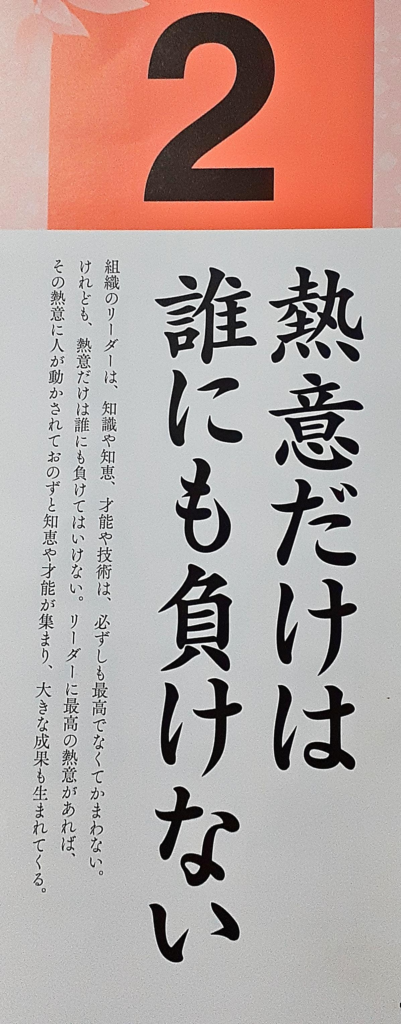 2
熱意だけは
誰にも負けない
組織のリーダーは、知識や知恵、才能や技術は、必ずしも最高でなくてかまわない。
けれども、熱意だけは誰にも負けてはいけない。リーダーに最高の熱意があれば、
その熱意に人が動かされておのずと知恵や才能が集まり、大きな成果も生まれてくる。